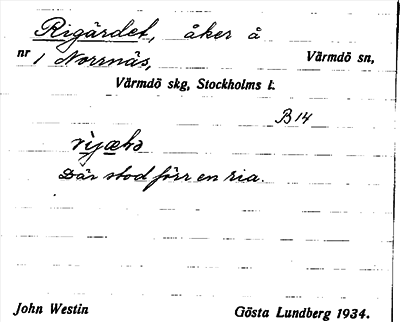 Rigärdet, åker å
nr 1 Norrnäs, Värmdö sn,
Värmdö skg, Stockholms l.
B14
Där stod förr en ria.
John Westin Gösta Lundberg 1934.